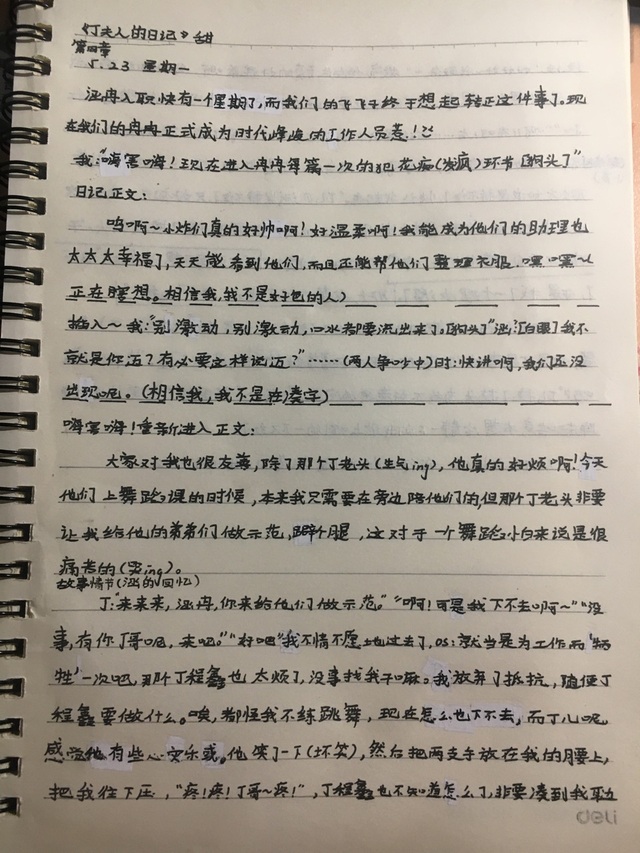 《丁夫人的日记》甜
第四章
5.23 星期一
涵冉入职快有一个星期了,而我们的飞飞子终于想起转正这件事了。现
在我们的冉冉正式成为时代峰峻的工作人员惹!
我:"嗨害嗨!现在进入冉冉得第一次的犯花痴(发疯)环节[狗头]"
日记正文:
呜啊~小炸们真的好帅啊!好温柔啊!我能成为他们的助理也
太太太幸福了,天天能看到他们,而且还能帮他们整理衣服.嘿嘿~(
正在瞑想。相信我,我不是好色的人)
插入~我:"别激动,别激动,口水都要流出来了。[狗头]"涵:[白眼]我不
就是你迈?有必要这样说迈?"……(两人争吵中)时:快讲啊,我们还没
出现呢。(相信我,我不是在凑字)
嗨害嗨!重新进入正文:
大家对我也很友善,除了那个丁老头(生气ing),他真的好烦啊!今天
他们上舞蹈课的时候,本来我只需要在旁边陪他们的,但那个丁老头非要
让我给他的弟弟们做示范,劈个腿,这对于一个舞蹈小白来说是很
痛苦的(哭ing)。
故事情节(涵的回忆)
丁:"来来来,涵冉,你来给他们做示范。""啊!可是我下不去啊~""没
事,有你丁哥呢,来吧。""好吧"我不情不愿地过去了,os:就当是为工作而"牺
牲"一次吧,那个丁程鑫也太烦了,没事找我干嘛。我放弃了抵抗,随便丁
程鑫要做什么。唉,都怪我不练跳舞,现在怎么也下不去,而丁儿呢
感觉他有些心安乐或。他笑了一下(坏笑),然后把两支手放在我的腰上,
把我往下压,"疼!疼!丁哥~疼!",丁程鑫也不知道怎么了,非要凑到我耳边
deli